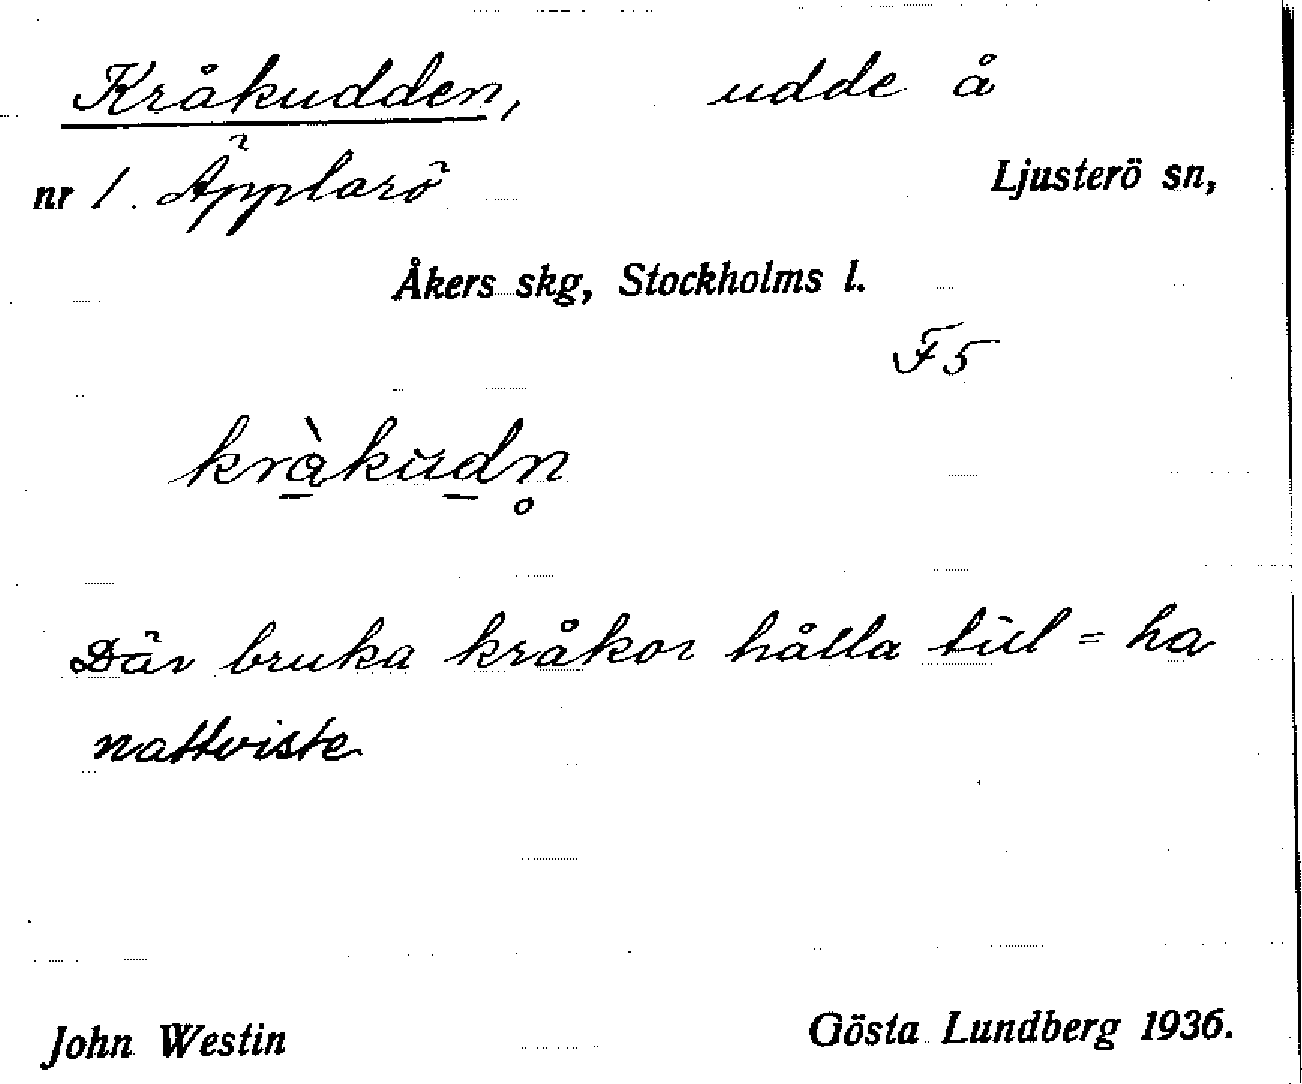 Kråkudden, udde å
nr 1. Äpplarö Ljusterö sn,
Åkers skg, Stockholms l.
F5
krà̱kuḏn̥
Där bruka kråkor hålla till = ha
nattviste
John Westin Gösta Lundberg 1936.